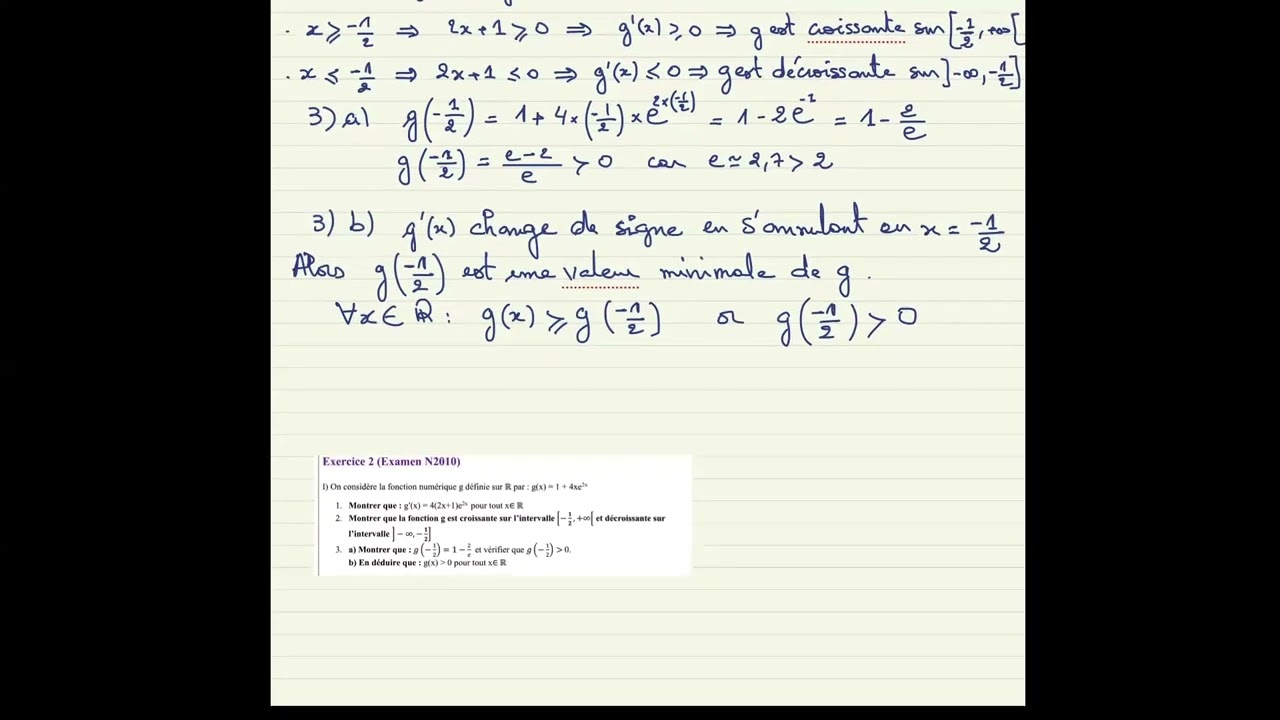 . x ≥ -1/2 ⇒ 2x+1 ≥ 0 ⇒ g'(x) ≥ 0 ⇒ g est croissante sur [-1/2, +∞[
. x ≤ -1/2 ⇒ 2x+1 ≤ 0 ⇒ g'(x) ≤ 0 ⇒ g est décroissante sur ]-∞, -1/2]
3) a) g(-1/2) = 1 + 4×(-1/2)×e^(2×(-1/2)) = 1 - 2e^-1 = 1 - 2/e
g(-1/2) = (e-2)/e > 0 car e ≃ 2,7 > 2
3) b) g'(x) change de signe en s'annulant en x = -1/2
Alors g(-1/2) est une valeur minimale de g .
∀x ∈ ℝ : g(x) ≥ g(-1/2) or g(-1/2) > 0
Exercice 2 (Examen N2010)
I) On considère la fonction numérique g définie sur ℝ par : g(x) = 1 + 4xe^2x
1. Montrer que : g'(x) = 4(2x+1)e^2x pour tout x∈ ℝ
2. Montrer que la fonction g est croissante sur l'intervalle [-1/2, +∞[ et décroissante sur
l'intervalle ]-∞, -1/2]
3. a) Montrer que : g(-1/2) = 1 - 2/e et vérifier que g(-1/2) > 0.
b) En déduire que : g(x) > 0 pour tout x∈ ℝ